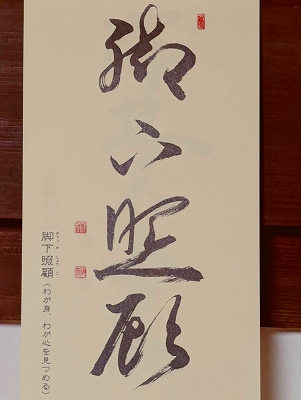 脚下照顧
脚下照顧（わが身、わが心を見つめる）
きゃっかしょうこ